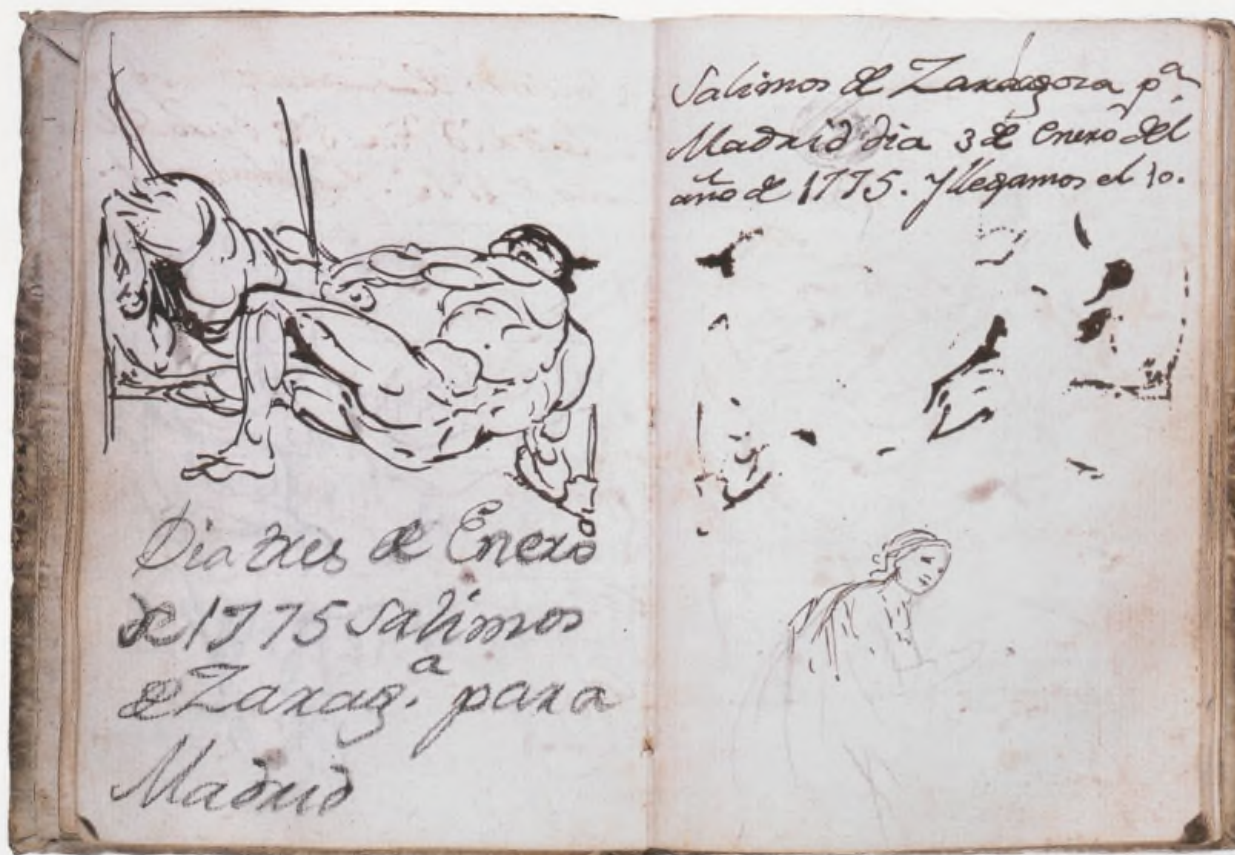 Dia tres de Enero
de 1775 Salimos
de Zarag.ª para
Madrid
Salimos de Zaragoza pª
Madrid dia 3 de Enero del
año de 1775. y llegamos el 10.